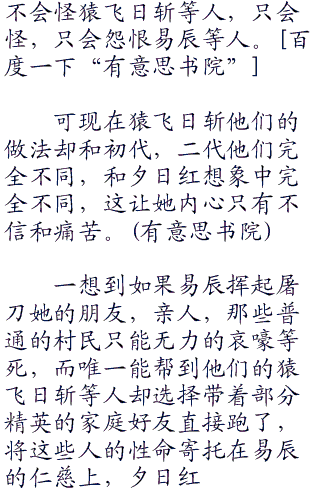 不会怪猿飞日斩等人，只会
怪，只会怨恨易辰等人。[百
度一下“有意思书院”]
可现在猿飞日斩他们的
做法却和初代，二代他们完
全不同，和夕日红想象中完
全不同，这让她内心只有不
信和痛苦。(有意思书院)
一想到如果易辰挥起屠
刀她的朋友，亲人，那些普
通的村民只能无力的哀嚎等
死，而唯一能帮到他们的猿
飞日斩等人却选择带着部分
精英的家庭好友直接跑了，
将这些人的性命寄托在易辰
的仁慈上，夕日红